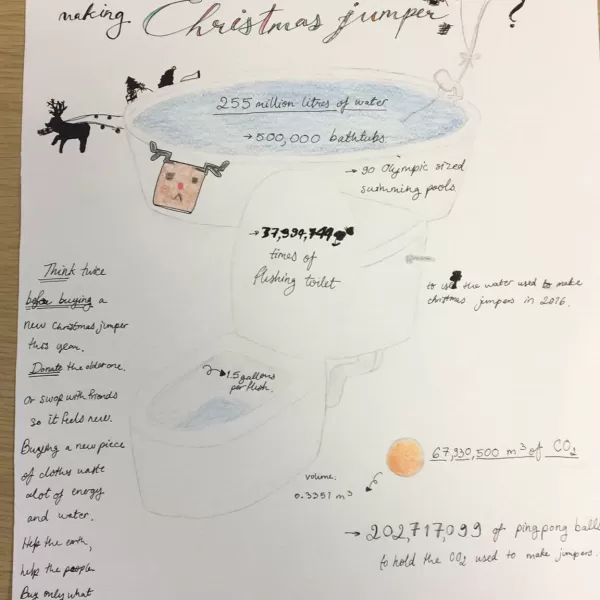 making Christmas jumper ?
255 million litres of water
→ 500,000 bathtubs
→ 90 Olympic sized
swimming pools
→ 37,994,744
times of
flushing toilet
to use the water used to make
christmas jumpers in 2016.
Think twice
before buying a
new Christmas jumper
this year.
Donate the older one.
Or swap with friends
so it feels new.
Buying a new piece
of cloths waste
alot of energy
and water.
Help the earth,
help the people
Buy only what
1.5 gallons
per flush.
67,930,500 m³ of CO₂
volume.
0.3351 m³
→ 202,717,099 of pingpong balls
to hold the CO₂ used to make jumpers.